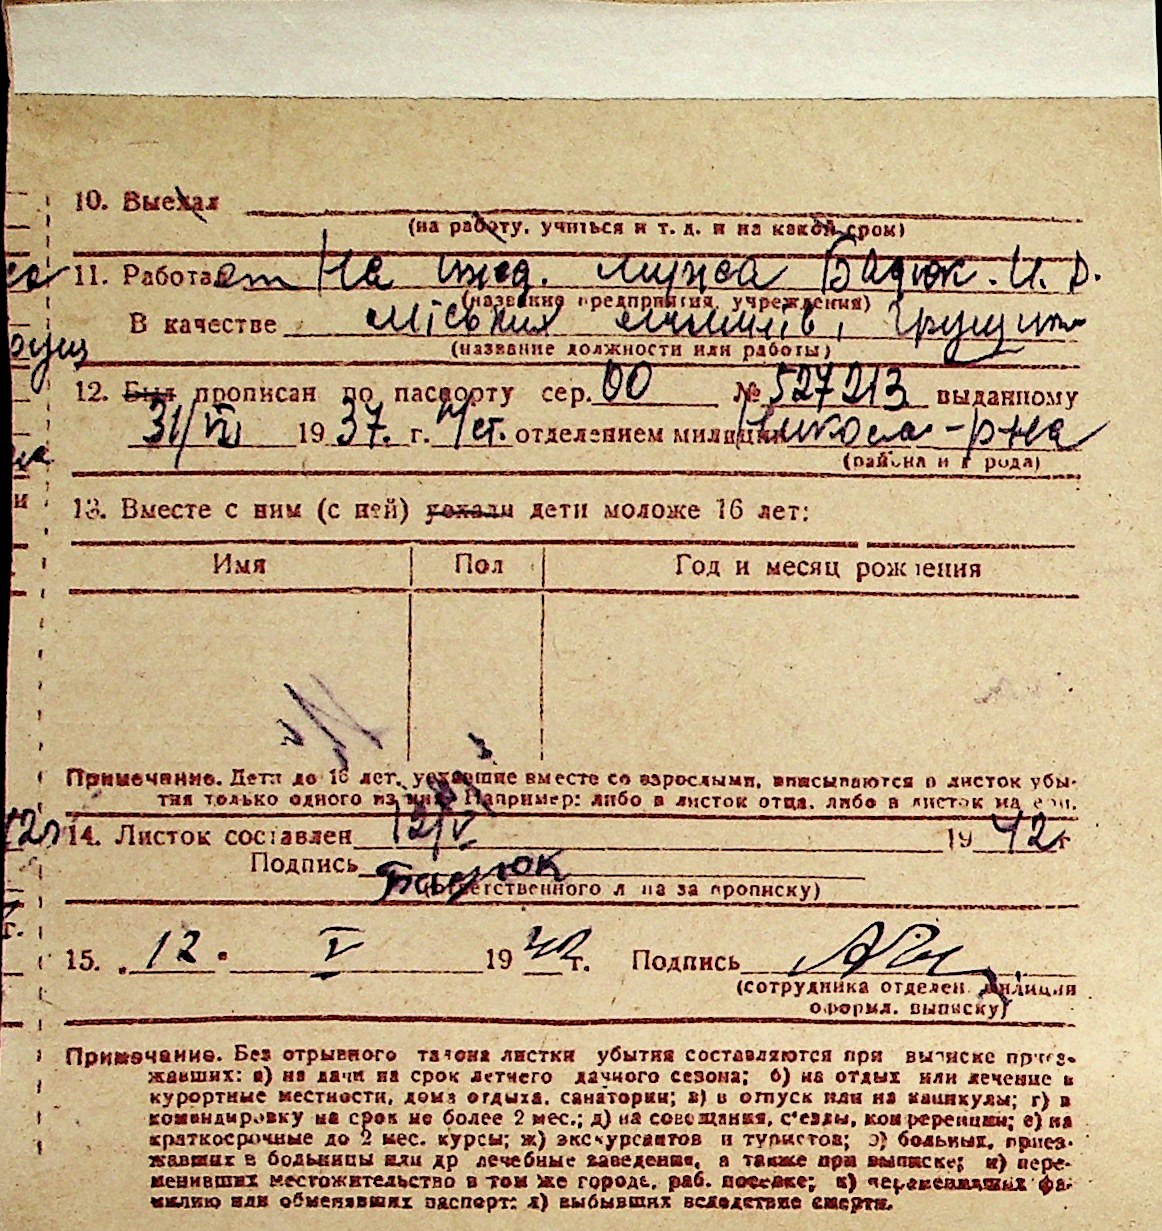 10. Выехал
(на работу, учиться и т. д. и на какой срок)
11. Работает На ижд. мужа Бадюк. И. Д.
(название предприятия, учреждения)
В качестве міських
(название должности или работы)
12. Был прописан по паспорту сер. 00 № 527213 выданному
31/VII 1937. г. 4/ст. отделением милиции Никола-р-на
(района и города)
13. Вместе с ним (с ней) уехали дети моложе 16 лет:
Имя Пол Год и месяц рождения
Примечание. Дети до 16 лет, уехавшие вместе со взрослыми, вписываются в листок убы-
тия только одного из них. Например: либо в листок отца, либо в листок матери.
14. Листок составлен 12/V 1942 г
Подпись Бадюк
(ответственного лица за прописку)
15. „12" V 1942 г. Подпись
(сотрудника отделен. милиции
оформл. выписку)
Примечание. Без отрывного талона листки убытия составляются при выписке приез-
жавших: а) на дачи на срок летнего дачного сезона; б) на отдых или лечение в
курортные местности, дома отдыха, санатории; в) в отпуск или на каникулы; г) в
командировку на срок не более 2 мес.; д) на совещания, с'езды, конференции; е) на
краткосрочные до 2 мес. курсы; ж) экскурсантов и туристов; з) больных, приез-
жавших в больницы или др лечебные заведения, а также при выписке; и) пере-
менивших местожительство в том же городе, раб. поселке; к) переменивших фа-
милию или обменявших паспорт; л) выбывших вследствие смерти.